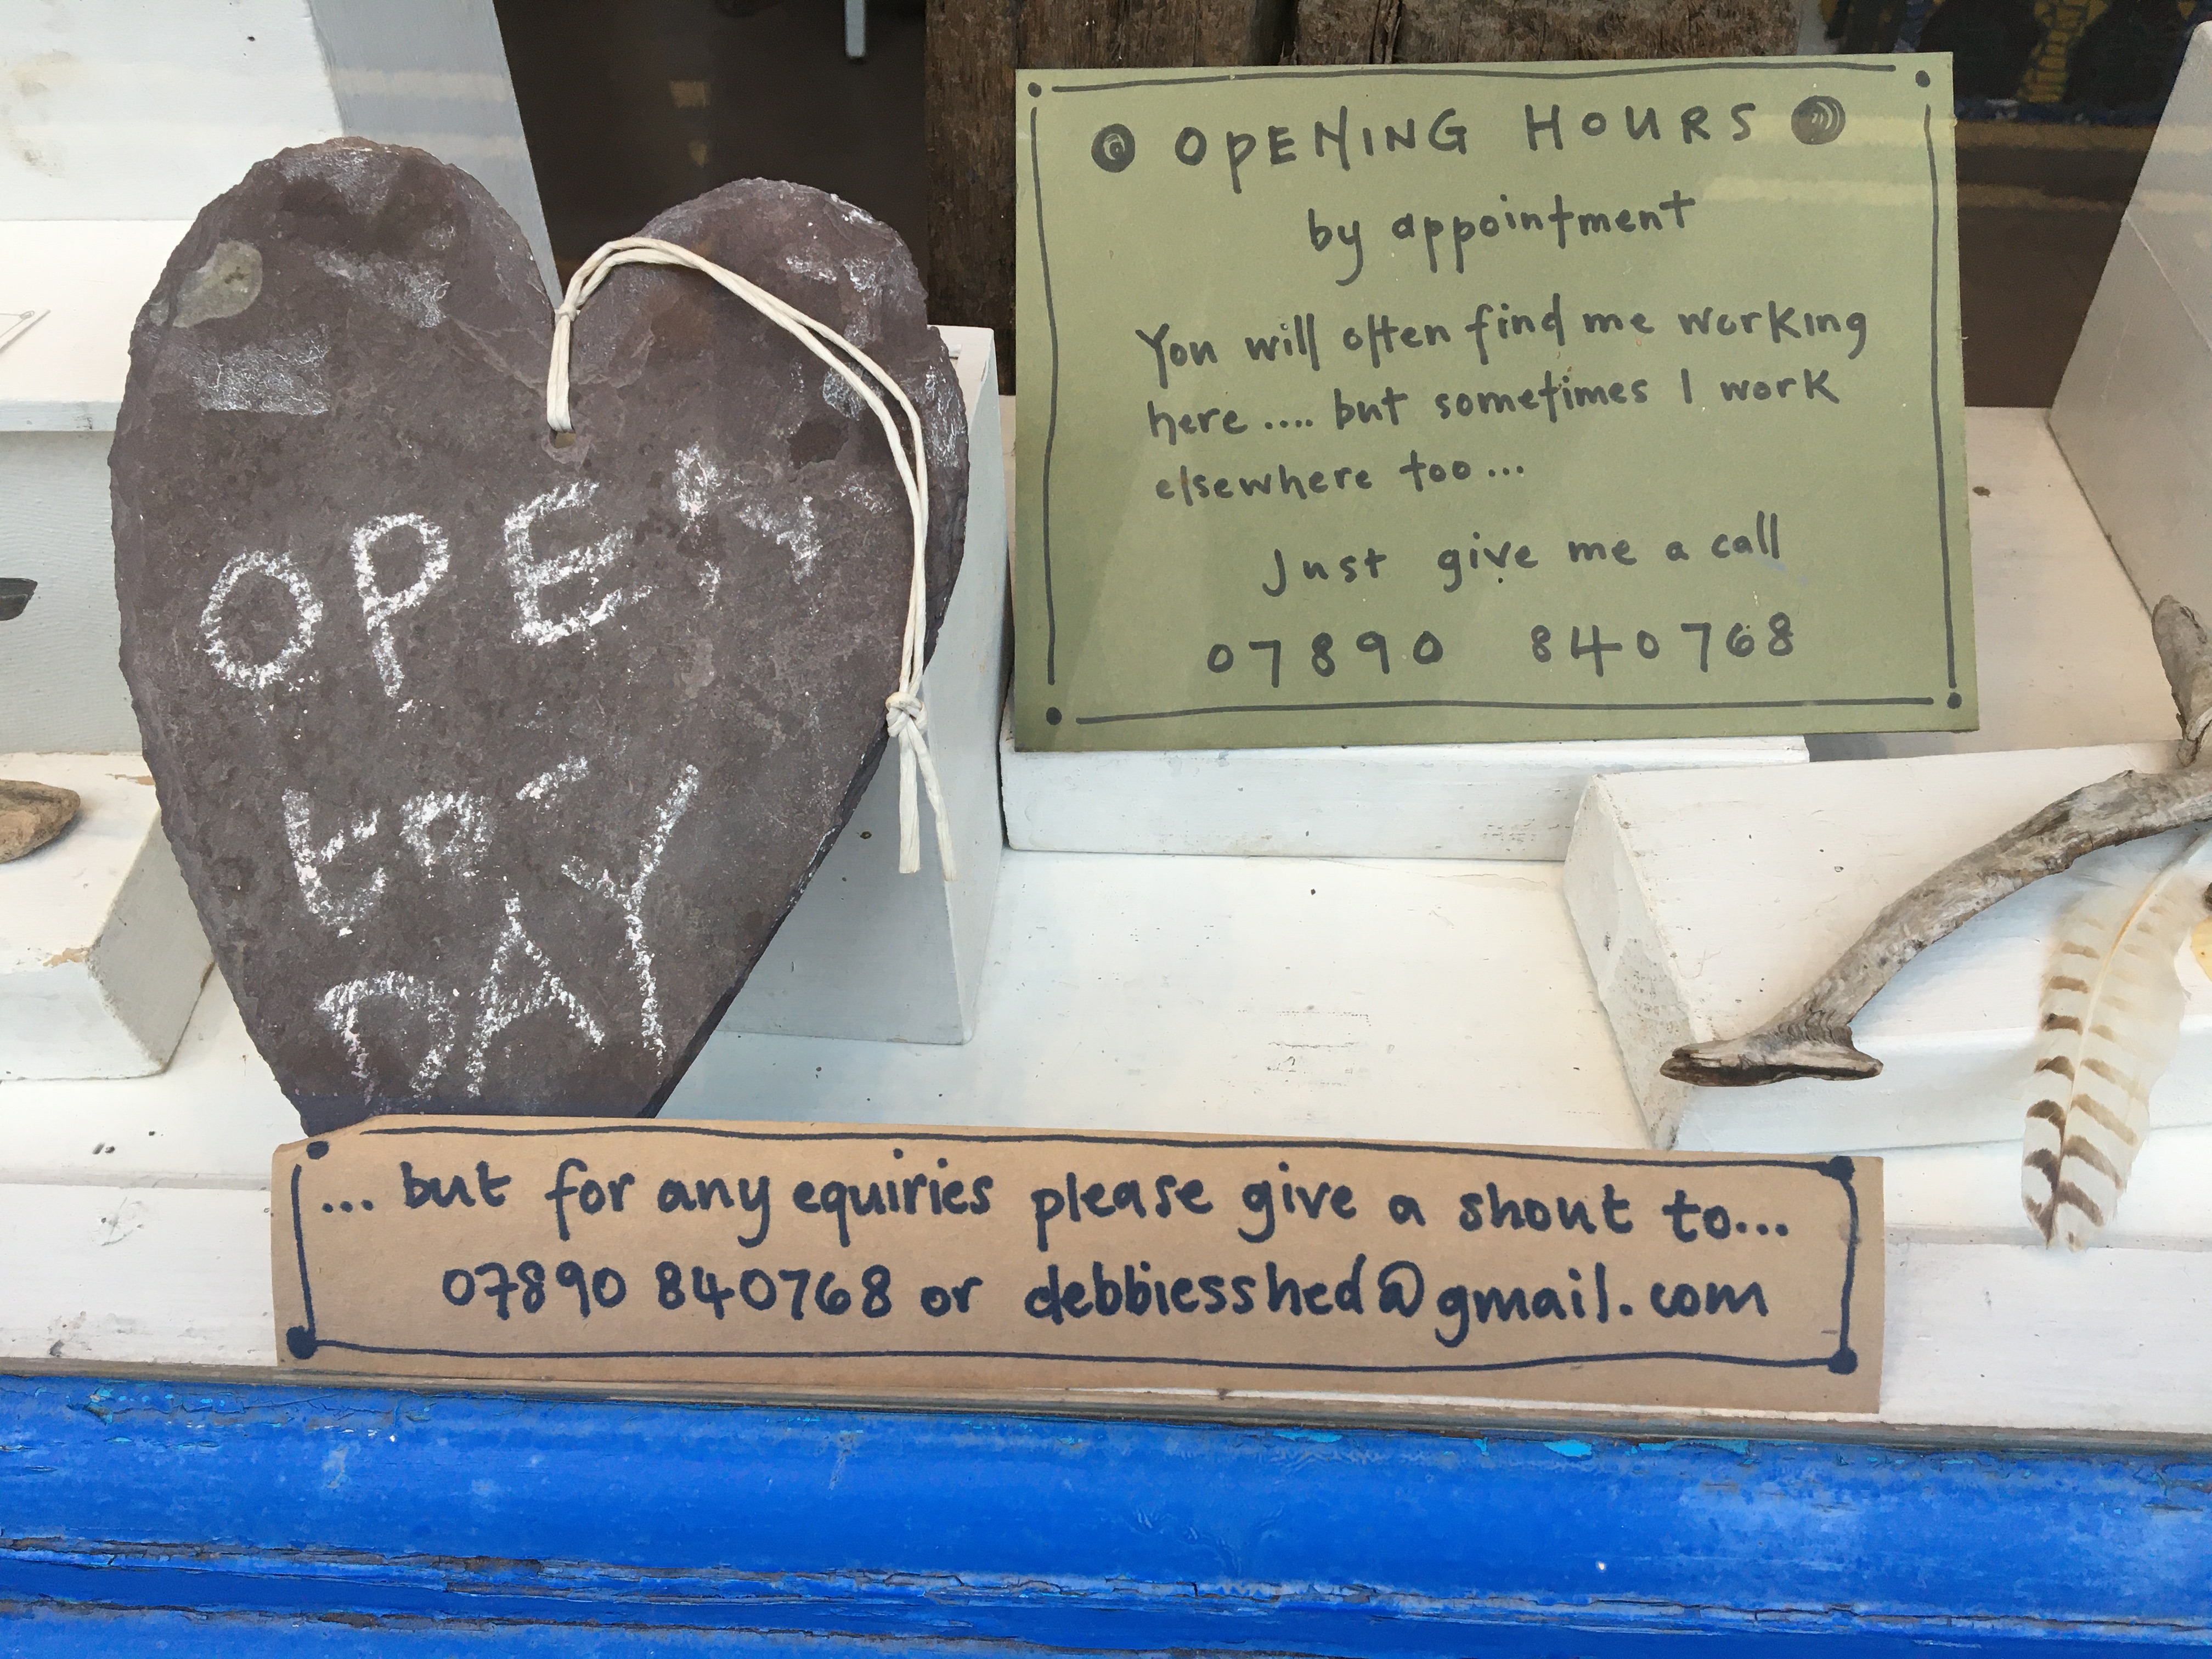 OPEN
to-
DAY
OPENING HOURS
by appointment
You will often find me working
here.... but sometimes I work
elsewhere too...
Just give me a call
07890 840768
... but for any equiries please give a shout to...
07890 840768 or debbiesshed@gmail.com